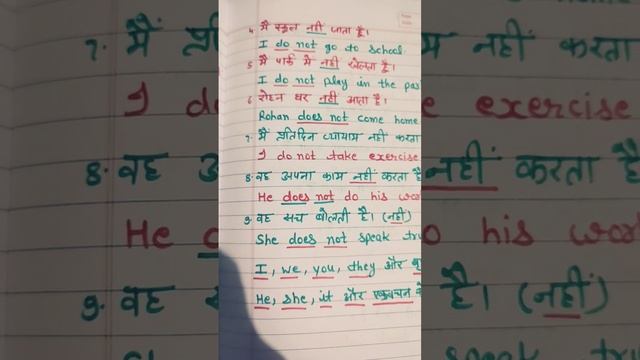 4. मैं स्कूल नहीं जाता हूँ।
I do not go to school.
5 मैं पार्क में नहीं खेलता हूँ।
I do not play in the
6. रोहन घर नहीं आता है।
Rohan does not come home
7. मैं प्रतिदिन व्यायाम नहीं करता
I do not take exercise
8. वह अपना काम नहीं करता है
He does not do his
9. वह सच बोलती है। (नहीं)
She does not speak
I, we, you, they और
He, she, it और एकवचन